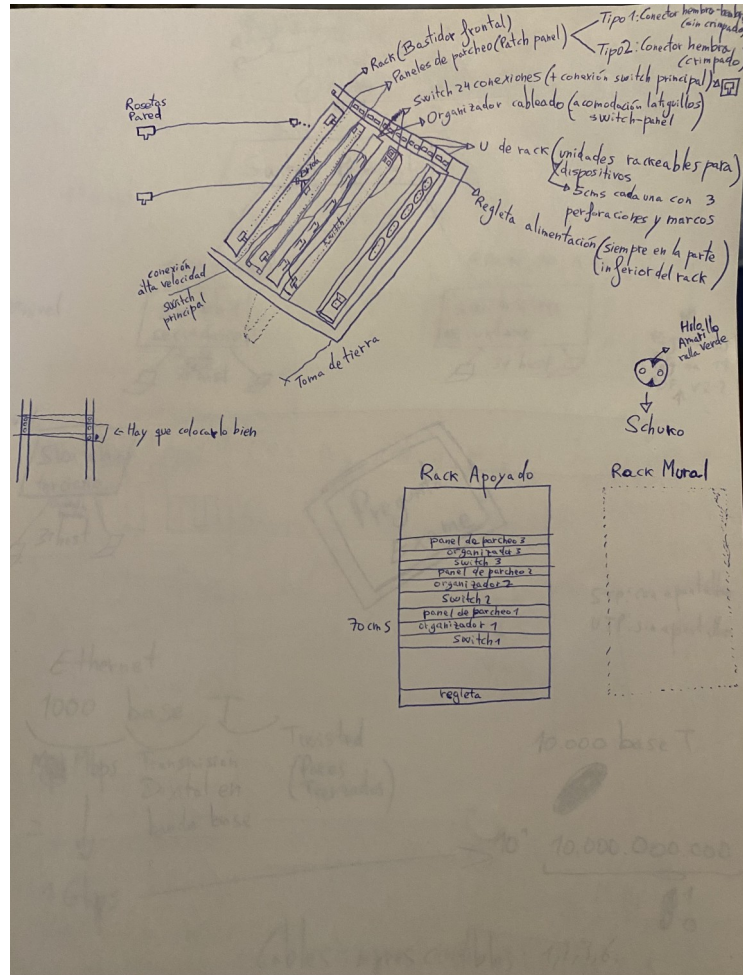 Rack (Bastidor frontal)
Paneles de parcheo (Patch panel)
Tipo 1: Conector hembra-hembra
(sin crimpado)
Tipo 2: Conector hembra
(crimpado)
Switch 24 conexiones (+ conexión switch principal)
Organizador cableado (acomodación latiguillos
switch-panel)
U de rack (unidades rackeables para
dispositivos)
5cms cada una con 3
perforaciones y marcos
Regleta alimentación (siempre en la parte
inferior del rack)
Rosetas
Pared
Switch
conexión
alta velocidad
switch
principal
Toma de tierra
Hilo
verde
Schuko
Hay que colocarlo bien
Rack Apoyado
panel de parcheo 3
organizador 3
switch 3
panel de parcheo 2
organizador 2
switch 2
panel de parcheo 1
organizador 1
switch 1
regleta
70 cms
Rack Mural
Ethernet
1000 base T
Transmisión
Digital en
banda base
10.000 base T
10.000.000.000